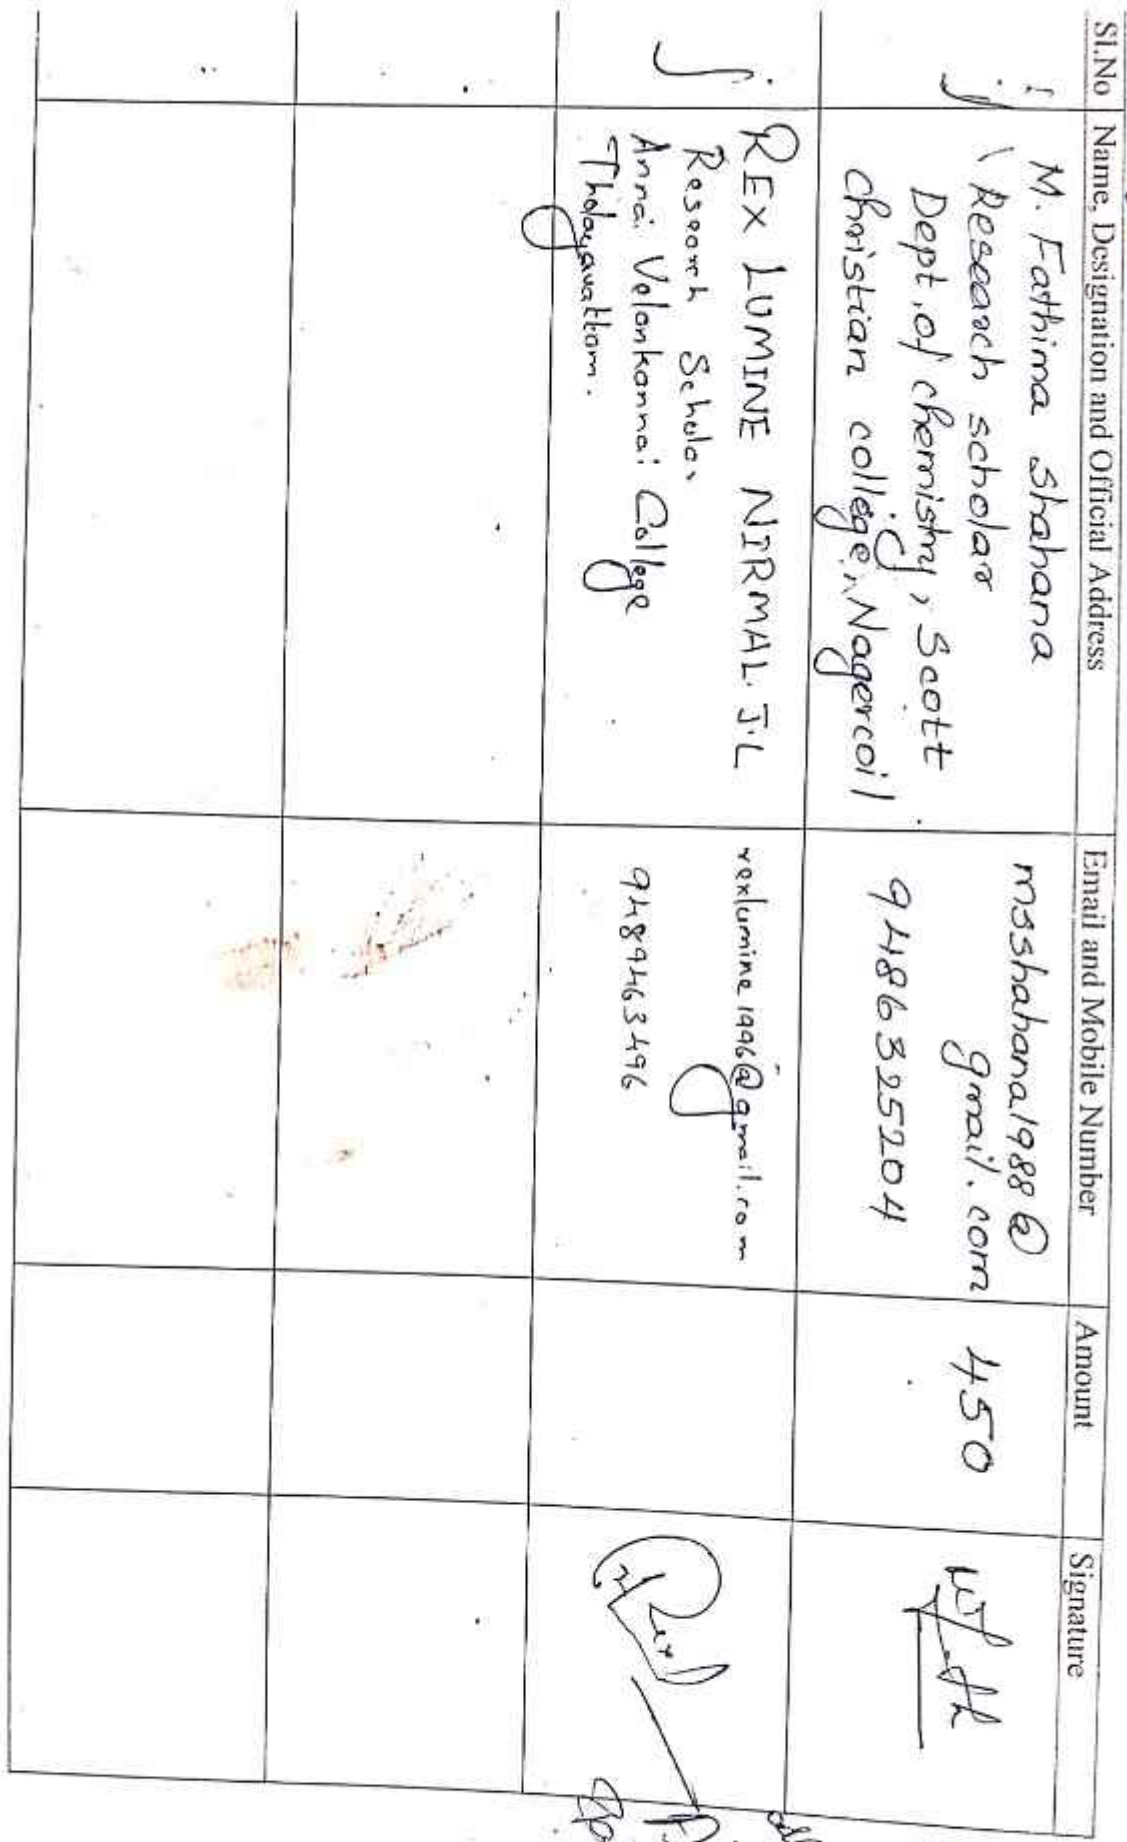 Sl.No Name, Designation and Official Address Email and Mobile Number Amount Signature
M. Fathima Shahana
Research scholar
Dept. of chemistry, Scott
Christian college, Nagercoil.
msshahana1988@
gmail.com
9486325204
450
REX LUMINE NIRMAL. J.L
Research Scholar
Annai Velankannai College
Tholayavattam.
rexlumine1996@gmail.com
9489463496
Rex